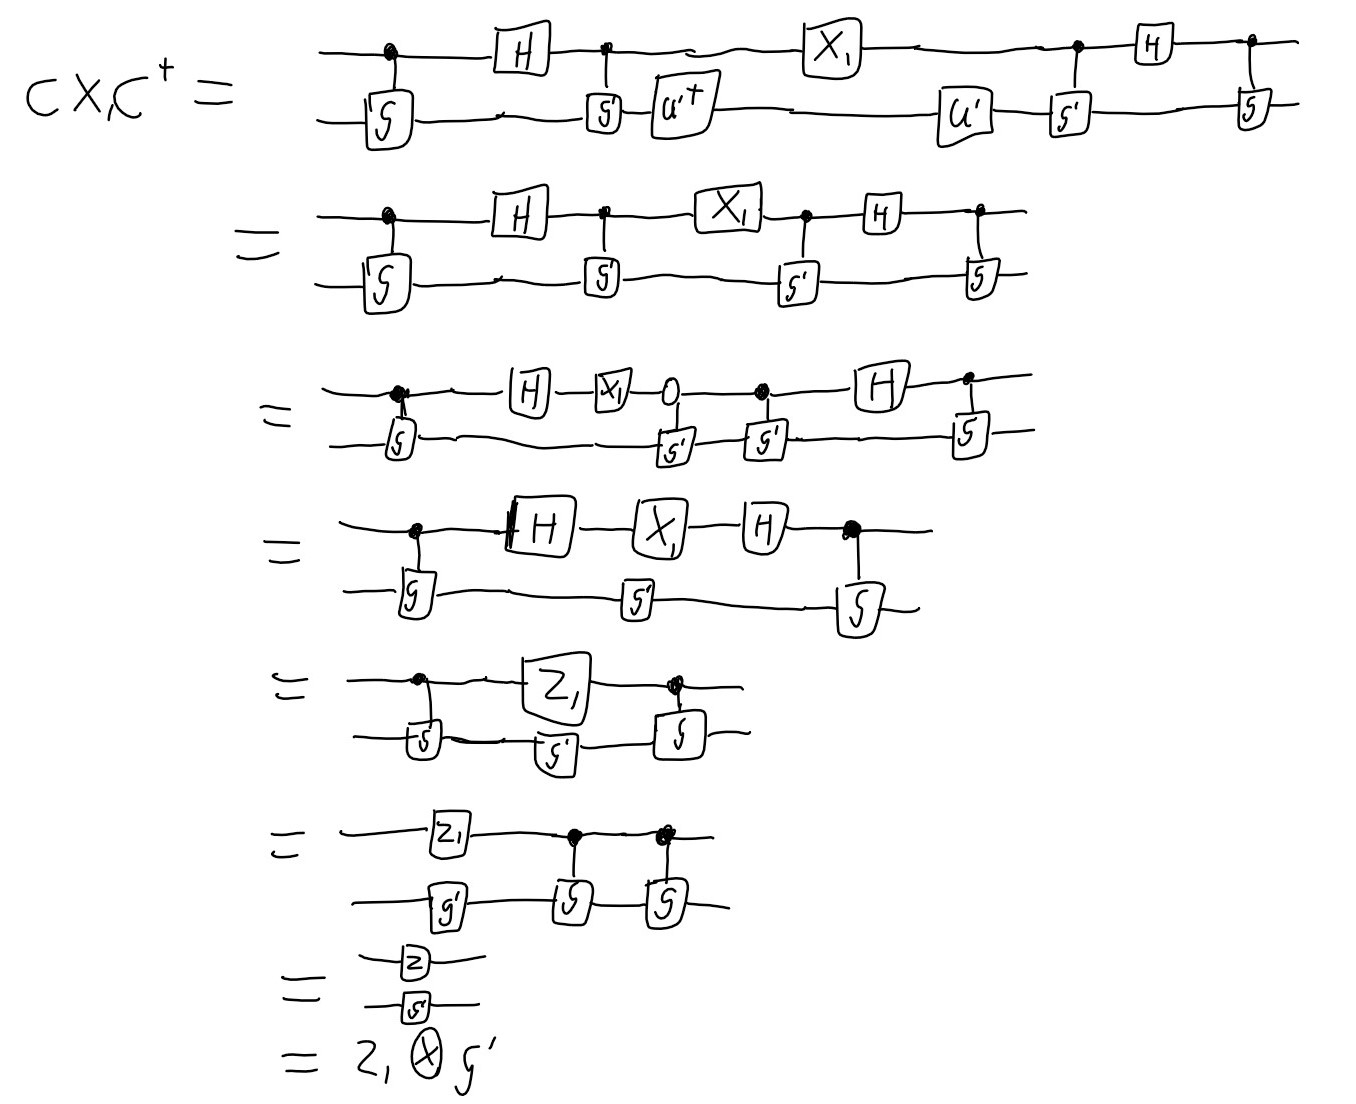 H X₁ H
CX₁C† =
g g' U'† U' g' g
H X₁ H
=
g g' g' g
H X₁ H
=
g g' g' g
H X₁ H
=
g g' g
Z₁
=
g g' g
Z₁
=
g' g g
Z
=
g'
= Z₁ ⊗ g'